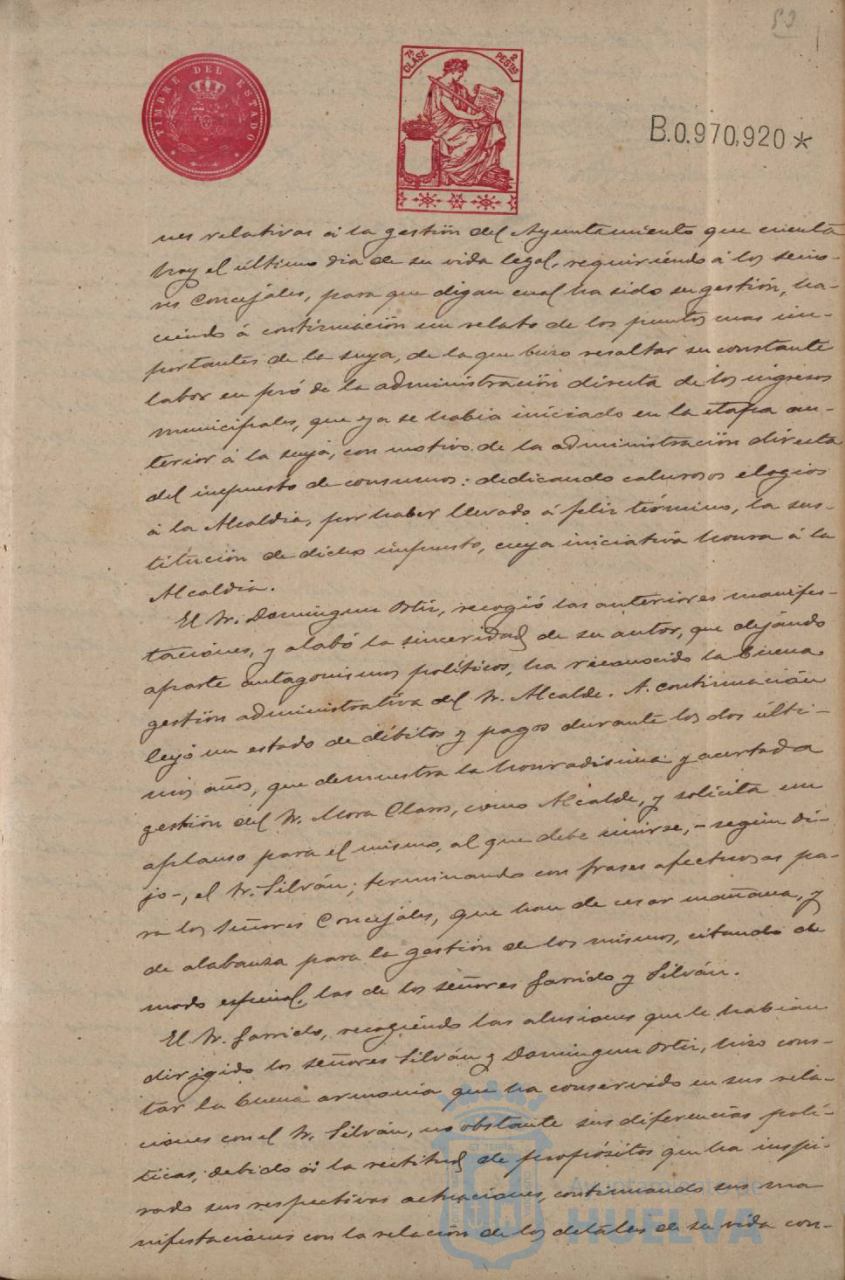 53
TIMBRE DEL ESTADO
7ª CLASE
2 PESTAS
B.0.970,920*
nes relativas á la gestión del Ayuntamiento que cuenta
hoy el último dia de su vida legal, requiriendo á los seño-
res Concejales, para que digan cual ha sido su gestión, ha-
ciendo á continuación un relato de los puntos mas im-
portantes de la suya, de la que hizo resaltar su constante
labor en pró de la administración directa de los ingresos
municipales, que ya se habia iniciado en la etapa an-
terior á la suya, con motivo de la administración directa
del impuesto de consumos: dedicando calurosos elogios
á la Alcaldia, por haber llevado á feliz término, la sus-
titución de dicho impuesto, cuya iniciativa honra á la
Alcaldia.
El Sr. Dominguez Ortiz, recogió las anteriores manifes-
taciones, y alabó la sinceridad de su autor, que dejando
aparte antagonismos políticos, ha reconocido la buena
gestión administrativa del Sr. Alcalde. A continuación
leyó un estado de débitos y pagos durante los dos últi-
mos años, que demuestra la honradisima y acertada
gestión del Sr. Mora Claros, como Alcalde, y solicita un
aplauso para el mismo, al que debe unirse, - según di-
jo-, el Sr. Silván; terminando con frases afectuosas pa-
ra los Señores Concejales, que han de cesar mañana, y
de alabanza para la gestión de los mismos, citando de
modo especial, las de los señores Garrido y Silván.
El Sr. Garrido, recogiendo las alusiones que le habian
dirigido los señores Silván y Dominguez Ortiz, hizo cons-
tar la buena armonia que ha conservado en sus rela-
ciones con el Sr. Silván, no obstante sus diferencias polí-
ticas, debido á la rectitud de propósitos que ha inspi-
rado sus respectivas actuaciones, continuando sus ma
nifestaciones con la relación de los detalles de su vida con-
Ayuntamiento de
HUELVA